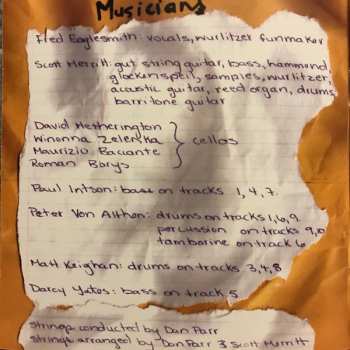 Musicians
Fred Eaglesmith: vocals, wurlitzer funmaker
Scott Merritt: gut string guitar, bass, hammond,
glockenspeil, samples, wurlitzer,
acoustic guitar, reed organ, drums,
barritone guitar
David Hetherington
Winonna Zelenka
Maurizio Baciante
Roman Borys
} cellos
Paul Intson: bass on tracks 1, 4, 7.
Peter Von Althon: drums on tracks 1, 6, 9.
percussion on tracks 9, 10
tamborine on track 6
Matt Keighan: drums on tracks 3, 4, 8
Darcy Yates: bass on track 5
Strings conducted by Dan Parr
Strings arranged by Dan Parr & Scott Merritt